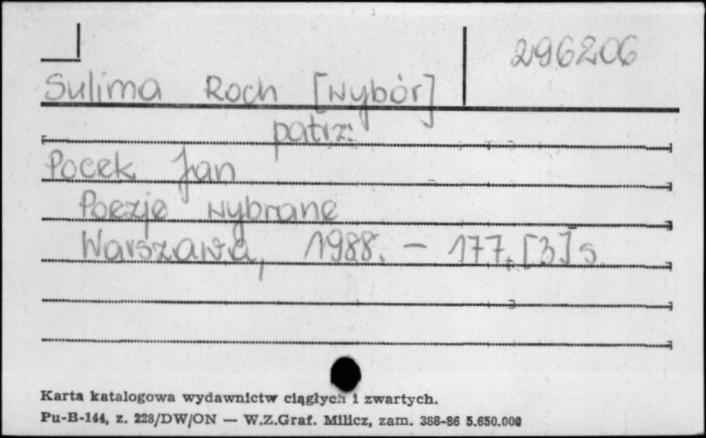 296206
Sulima Roch [wybór]
patrz:
Pocek Jan
Poezje wybrane
Warszawa, 1988. - 177, [3] s.
Karta katalogowa wydawnictw ciągłych i zwartych.
Pu-B-144, z. 228/DW/ON — W.Z.Graf. Milicz, zam. 388-86 5.650.000